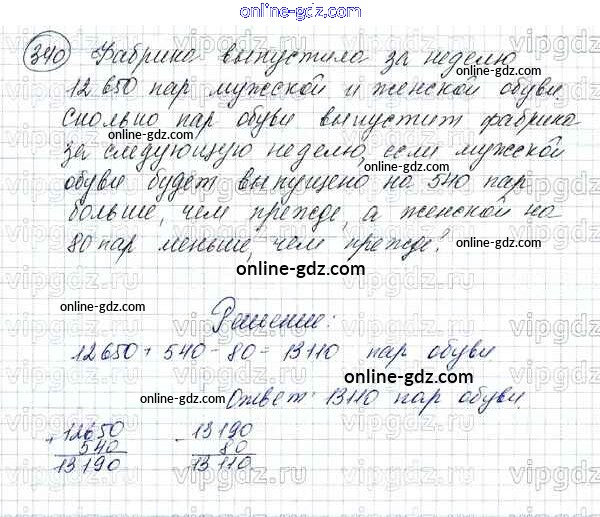 online-gdz.com
340 Фабрика выпустила за неделю
12 650 пар мужской и женской обуви.
online-gdz.com
Сколько пар обуви выпустит фабрика
online-gdz.com
за следующую неделю, если мужской
обуви будет выпущено на 540 пар
online-gdz.com
больше, чем прежде, а женской на
80 пар меньше, чем прежде?
online-gdz.com
online-gdz.com
Решение:
online-gdz.com
12650 + 540 - 80 = 13110 пар обуви
online-gdz.com
Ответ: 13110 пар обуви.
online-gdz.com
+ 12650 - 13190
540 80
13190 13110
online-gdz.com